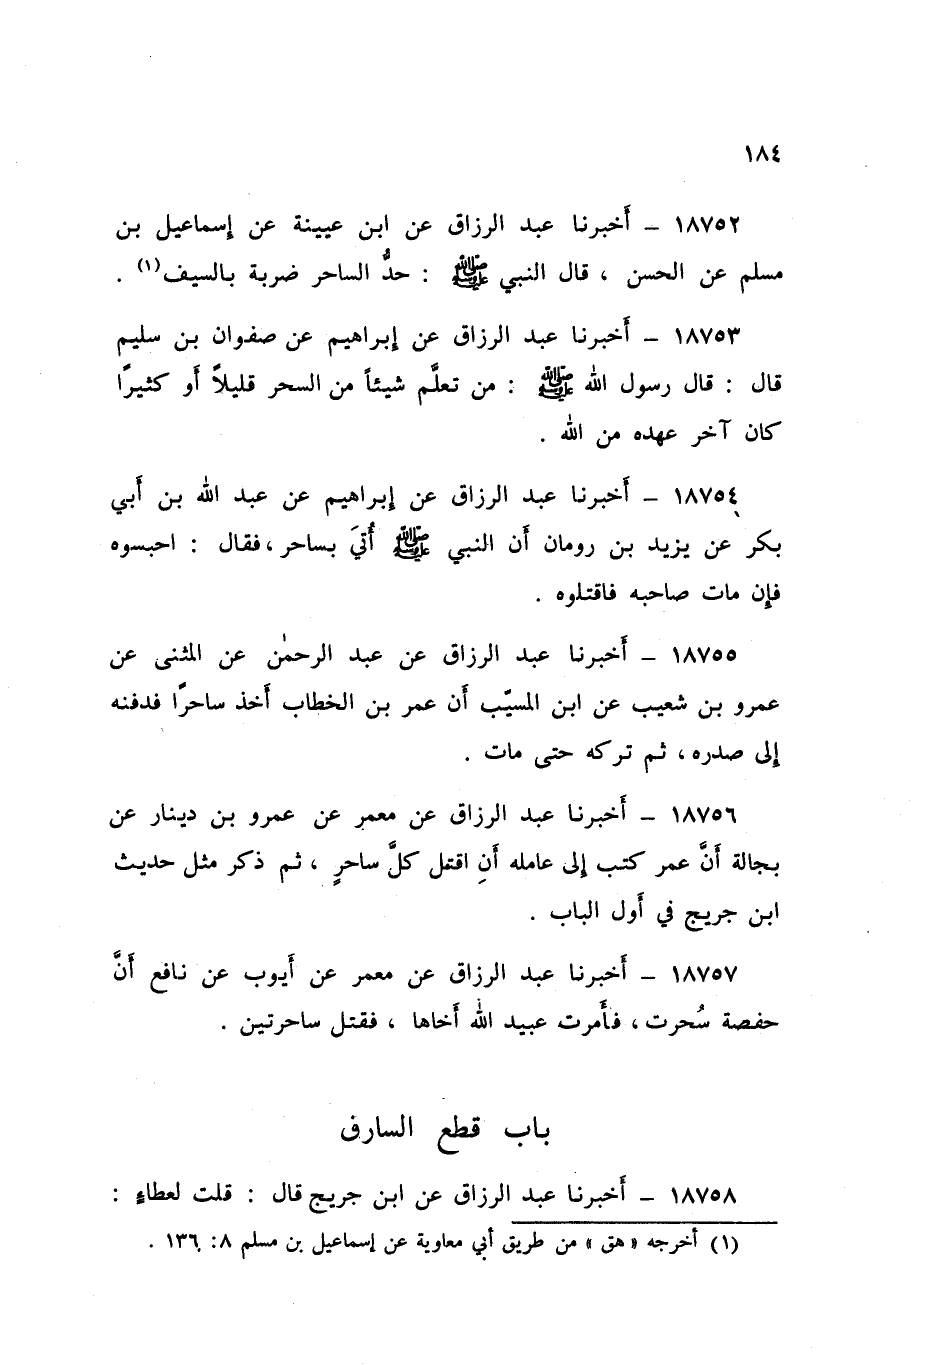 ١٨٤
١٨٧٥٢ – أَخبرنا عبد الرزاق عن ابن عيينة عن إسماعيل بن
مسلم عن الحسن ، قال النبي ﷺ : حدُّ الساحر ضربة بالسيف(١) .
١٨٧٥٣ – أَخبرنا عبد الرزاق عن إبراهيم عن صفوان بن سليم
قال : قال رسول الله ﷺ : من تعلَّم شيئاً من السحر قليلاً أَو كثيرًا
كان آخر عهده من الله .
١٨٧٥٤ – أَخبرنا عبد الرزاق عن إبراهيم عن عبد الله بن أَبي
بكر عن يزيد بن رومان أَن النبي ﷺ أُتيَ بساحر ، فقال : احبسوه
فإن مات صاحبه فاقتلوه .
١٨٧٥٥ – أَخبرنا عبد الرزاق عن عبد الرحمٰن عن المثنى عن
عمرو بن شعيب عن ابن المسيّب أَن عمر بن الخطاب أَخذ ساحرًا فدفنه
إلى صدره ، ثم تركه حتى مات .
١٨٧٥٦ – أَخبرنا عبد الرزاق عن معمر عن عمرو بن دينار عن
بجالة أَنَّ عمر كتب إلى عامله أَنِ اقتل كلَّ ساحرٍ ، ثم ذكر مثل حديث
ابن جريج في أَول الباب .
١٨٧٥٧ – أَخبرنا عبد الرزاق عن معمر عن أَيوب عن نافع أَنَّ
حفصة سُحرت ، فأَمرت عبيد الله أَخاها ، فقتل ساحرتين .
باب قطع السارق
١٨٧٥٨ – أَخبرنا عبد الرزاق عن ابن جريج قال : قلت لعطاءٍ :
(١) أخرجه « هق » من طريق أبي معاوية عن إسماعيل بن مسلم ٨: ١٣٦ .